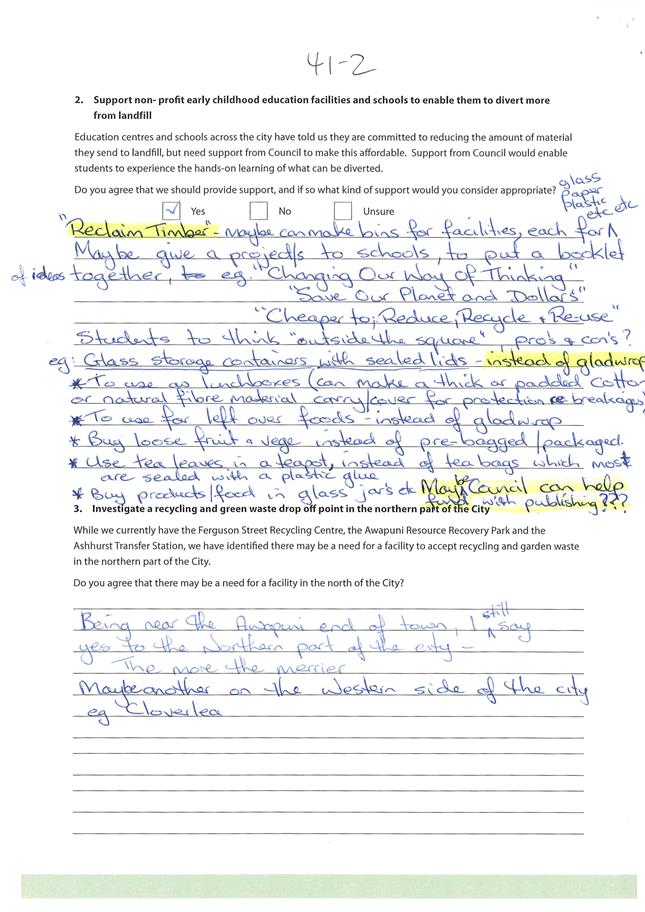 41-2
2. Support non- profit early childhood education facilities and schools to enable them to divert more
from landfill
Education centres and schools across the city have told us they are committed to reducing the amount of material
they send to landfill, but need support from Council to make this affordable. Support from Council would enable
students to experience the hands-on learning of what can be diverted.
Do you agree that we should provide support, and if so what kind of support would you consider appropriate?
glass
paper
plastic
etc etc etc
Yes No Unsure
"Reclaim Timber" - Maybe can make bins for facilities, each for
Maybe give a project/s to schools, to put a booklet
of ideas together, to eg. "Changing Our Way of Thinking"
"Save Our Planet and Dollars"
"Cheaper to; Reduce, Recycle & Re-use"
Students to think "outside the square", pro's & con's?
eg: Glass storage containers with sealed lids - instead of gladwrap
* To use as lunchboxes (can make a thick or padded cotton
or natural fibre material carry/cover for protection re breakages)
* To use for left over foods - instead of gladwrap
* Buy loose fruit & vege instead of pre-bagged/packaged.
* Use tea leaves in a teapot, instead of tea bags which most
are sealed with a plastic glue
* Buy products/food in glass jar's etc Maybe Council can help
fund with publishing???
3. Investigate a recycling and green waste drop off point in the northern part of the City
While we currently have the Ferguson Street Recycling Centre, the Awapuni Resource Recovery Park and the
Ashhurst Transfer Station, we have identified there may be a need for a facility to accept recycling and garden waste
in the northern part of the City.
Do you agree that there may be a need for a facility in the north of the City?
Being near the Awapuni end of town, I still say
yes to the Northern part of the city -
The more the merrier
Maybe another on the Western side of the city
eg Cloverlea